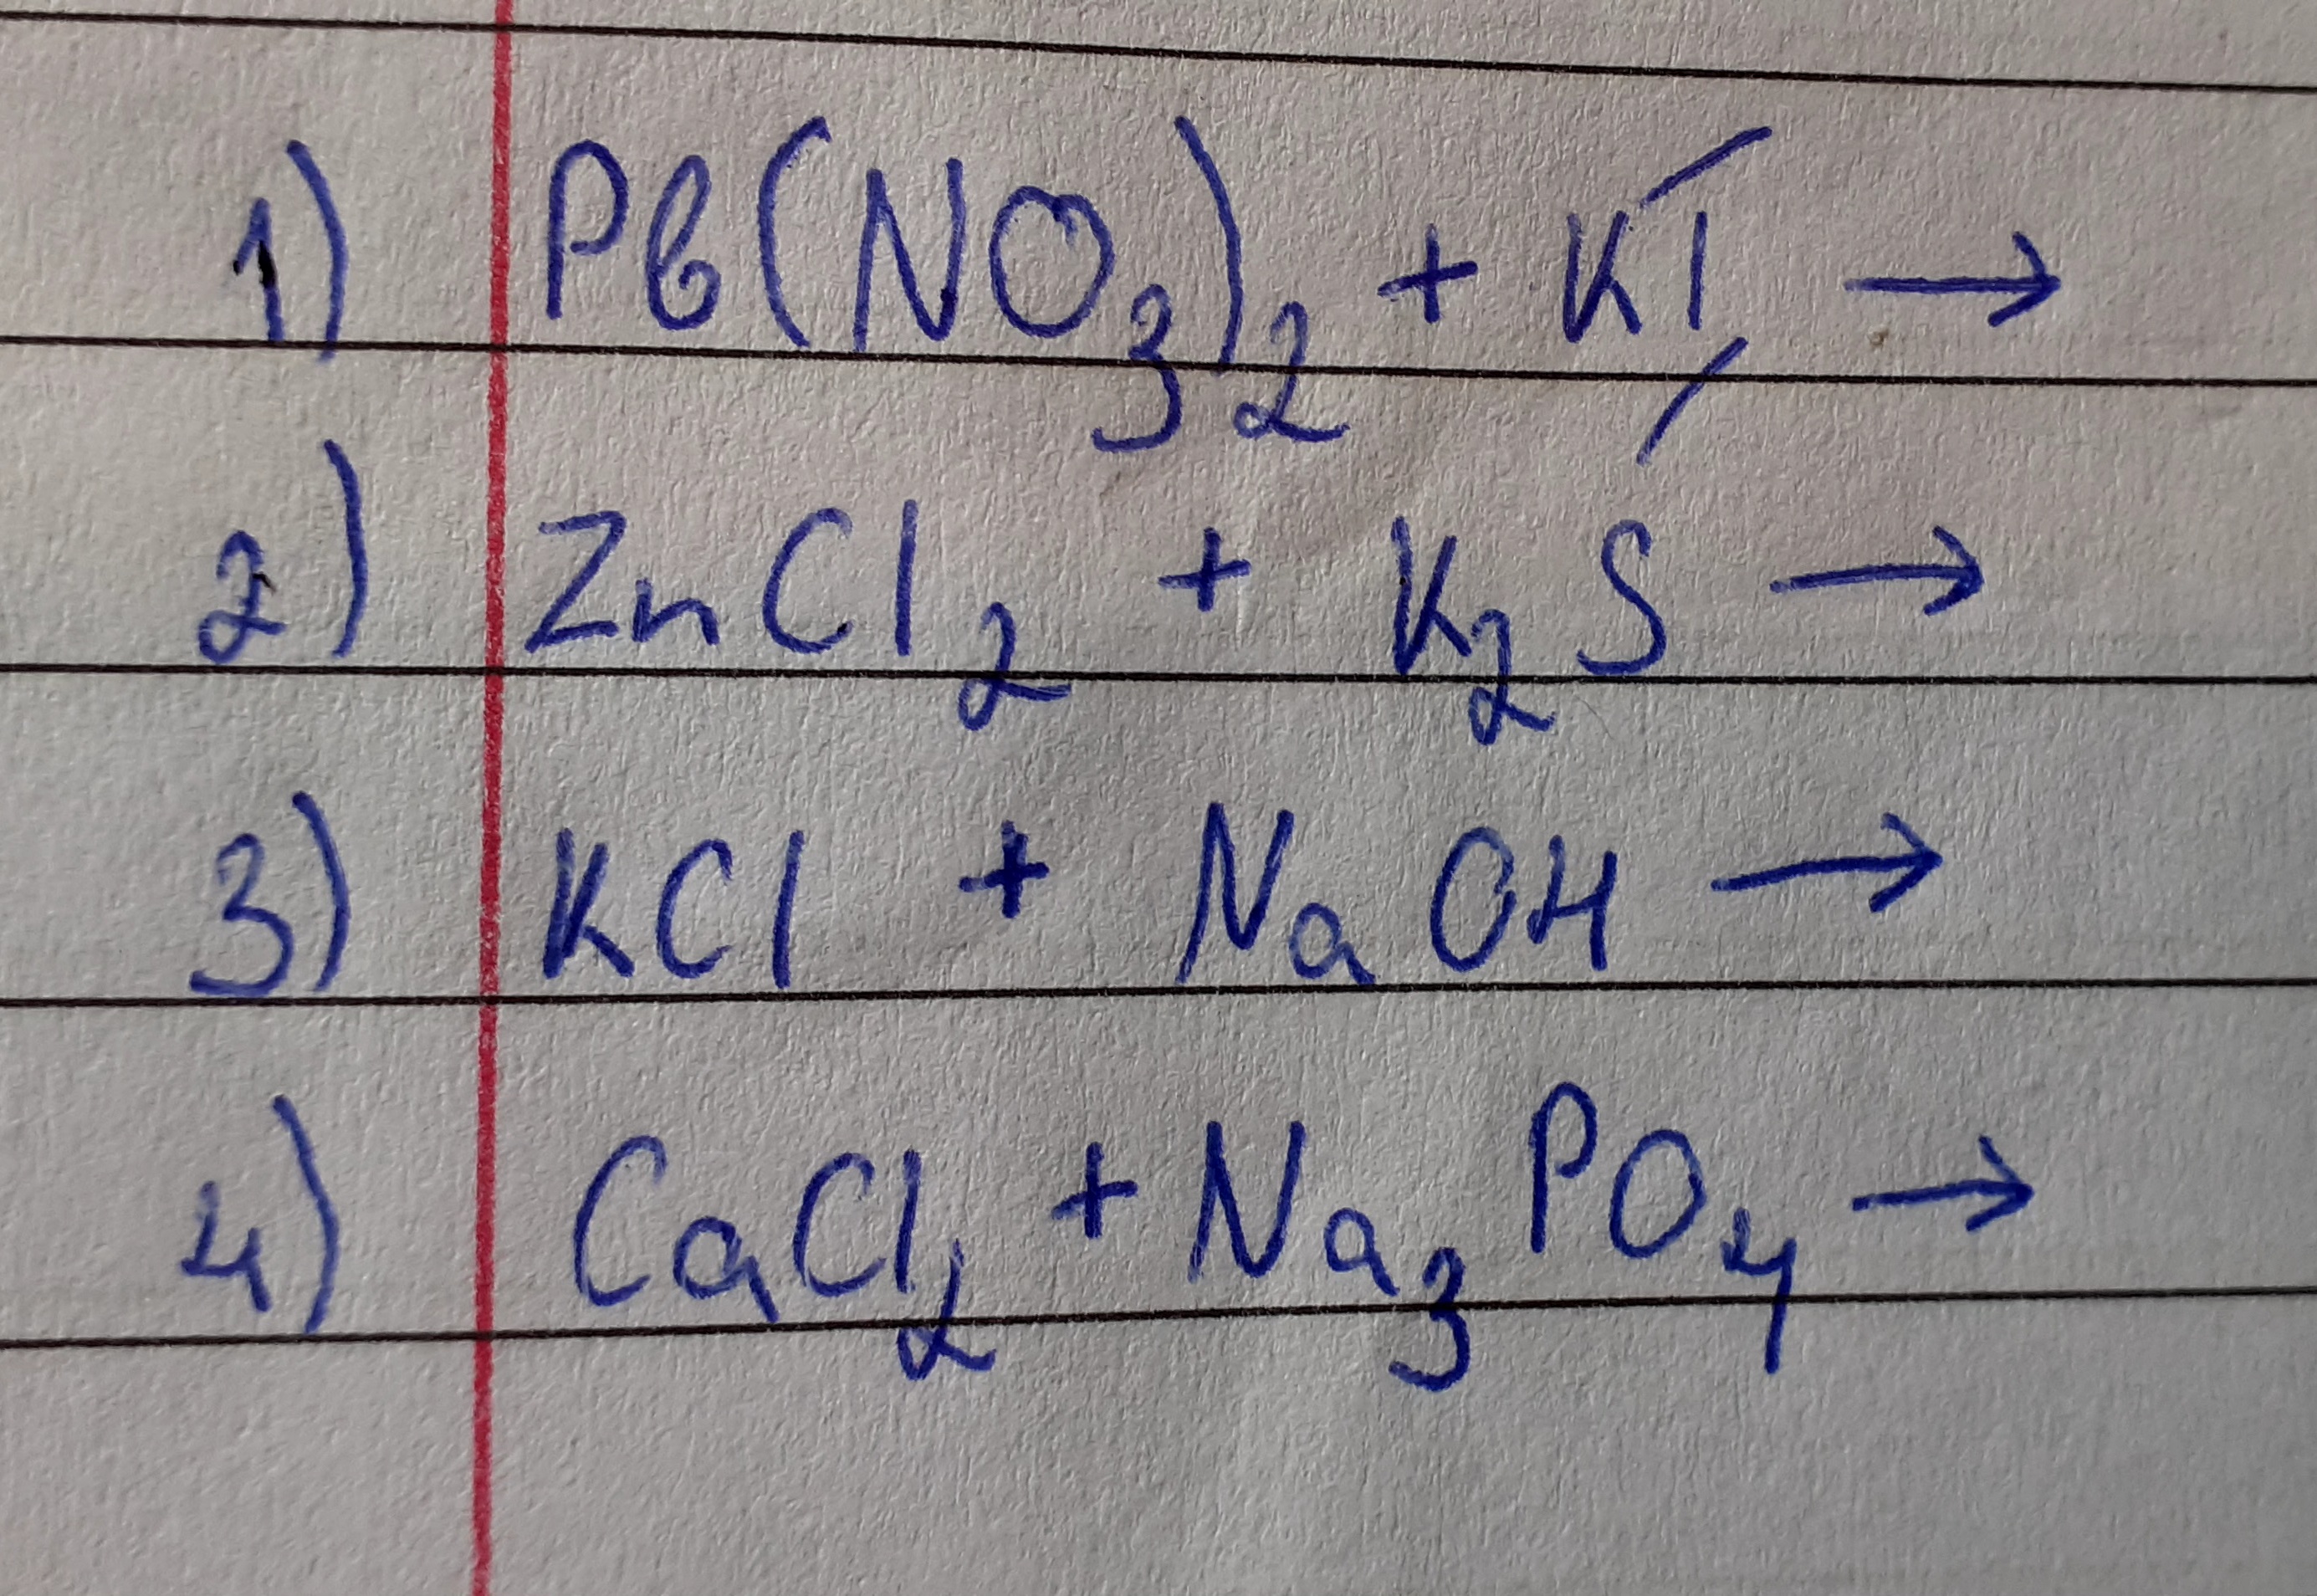 1) Pb(NO₃)₂ + KI →
2) ZnCl₂ + K₂S →
3) KCl + NaOH →
4) CaCl₂ + Na₃PO₄ →